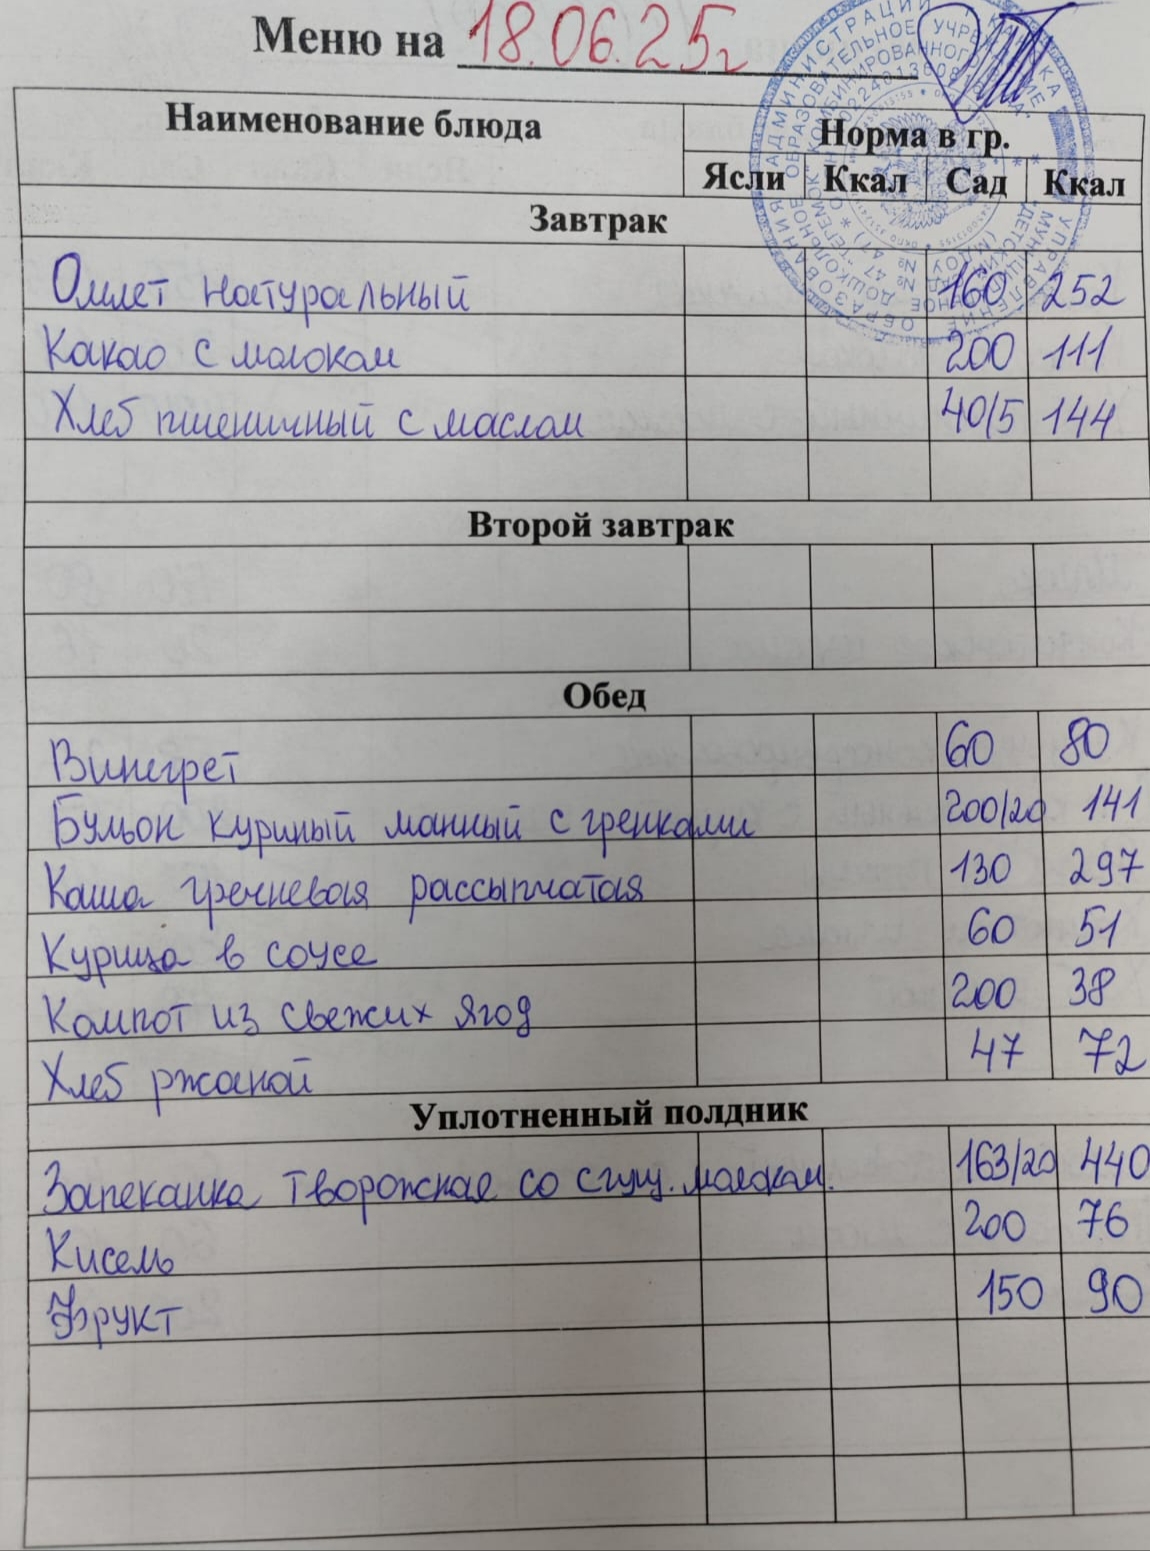 Меню на 18.06.25г
Наименование блюда Норма в гр.
Ясли Ккал Сад Ккал
Завтрак
Омлет натуральный 160 252
Какао с молоком 200 111
Хлеб пшеничный с маслом 40/5 144
Второй завтрак
Обед
Винегрет 60 80
Бульон куриный манный с гренками 200/20 141
Каша гречневая рассыпчатая 130 297
Курица в соусе 60 51
Компот из свежих ягод 200 38
Хлеб ржаной 47 72
Уплотненный полдник
Запеканка творожная со сгущ. молоком. 163/20 440
Кисель 200 76
Фрукт 150 90